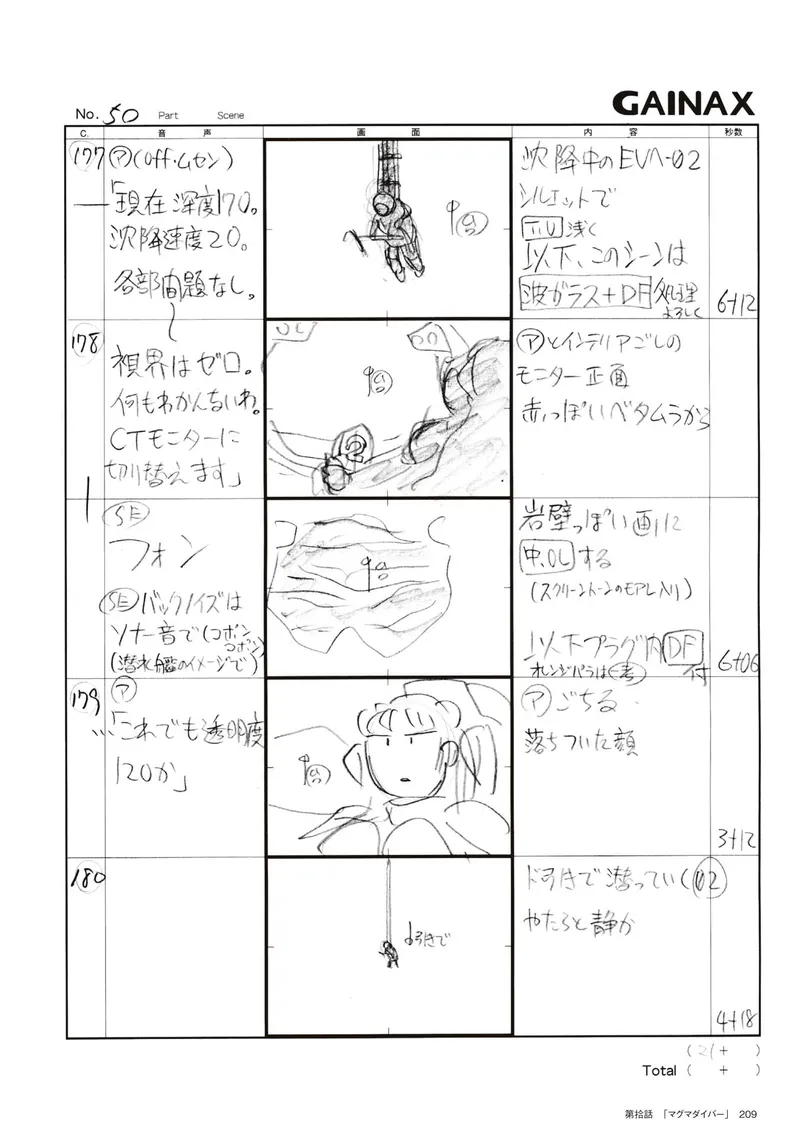 GAINAX
No. 50 Part Scene
C. 音声 画面 内容 秒数
177
ア(off・ムセン)
「現在深度170。
沈降速度20。
各部問題なし。
沈降中のEVA-02
シルエットで
T.U 浅く
以下、このシーンは
波ガラス+DF 処理
よろしく
6+12
178
視界はゼロ。
何もわかんないわ。
CTモニターに
切り替えます」
2
アとインテリアごしの
モニター正面
赤っぽいベタムラから
SE
フォン
SE バックノイズは
ソナー音で(コポン
コポン)
(潜水艦のイメージで)
岩壁っぽい画に
中OLする
(スクリーントーンのモアレ入り)
以下プラグ内DF
付
6+06
179
ア
「これでも透明度
120か」
アごちる
落ちついた顔
3+12
180
引きで
ド引きで潜っていく02
やたらと静か
4+18
(21+ )
Total ( + )
第拾話 「マグマダイバー」 209